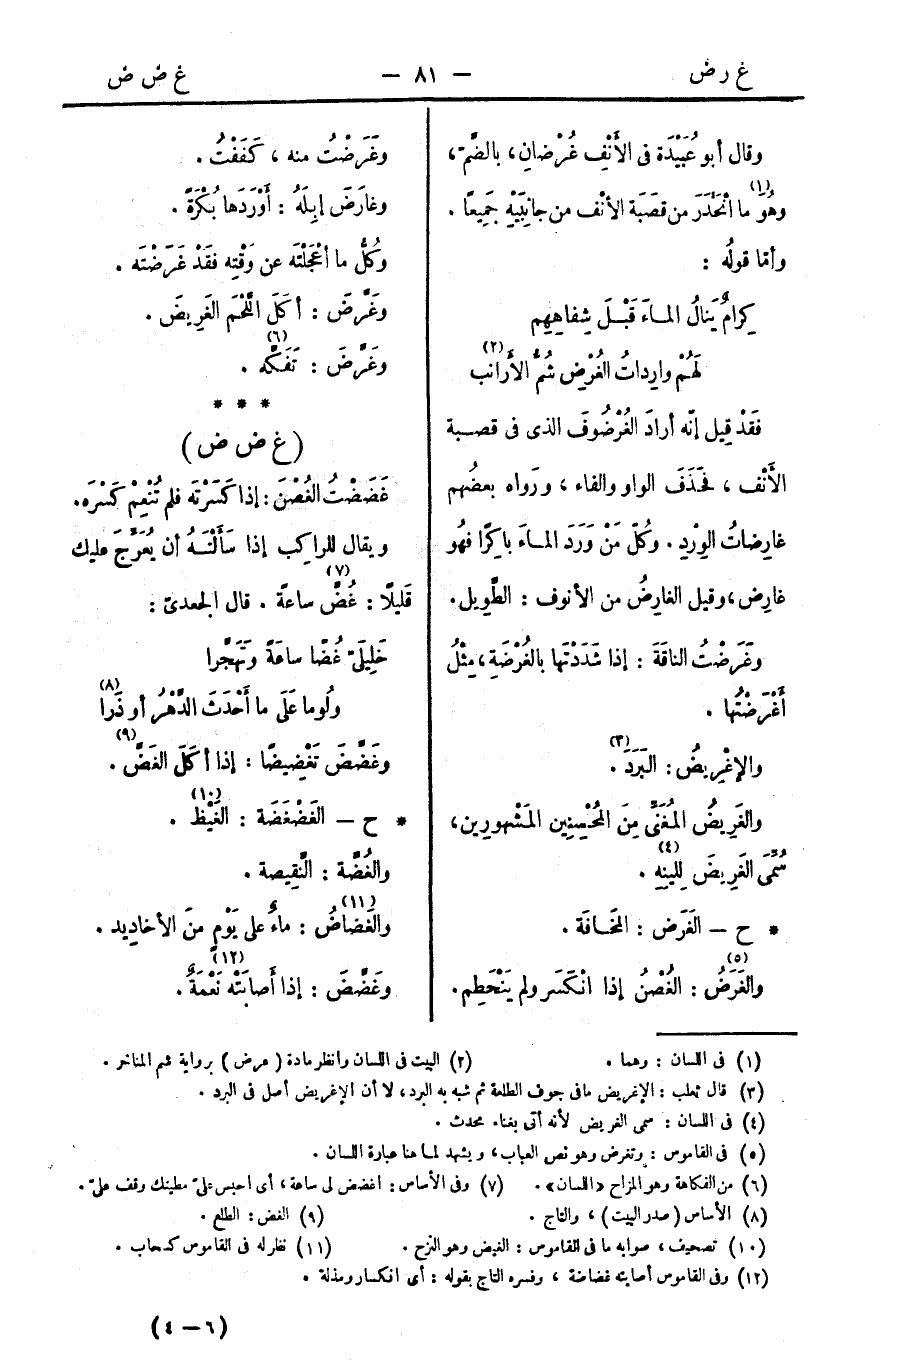 غ ر ض — ٨١ — غ ض ض
وقال أبو عُبَيْدَة فى الأَنْفِ غُرْضانِ، بالضَّمّ،
وهُوَ (١) ما انْحَدَرَ من قصَبَة الأنْف من جانِبَيْهِ جَمِيعًا .
وأمّا قولُه :
كِرامٌ يَنالُ المـاءَ قَبْـلَ شِفاهِهِم
لَهُمْ وارِداتُ الغُرْضِ شُمُّ الأَرانِب (٢)
فَقَدْ قِيل إنّه أرادَ الغُرْضُوفَ الذى فى قصـبة
الأَنْف ، فحَذَفَ الواو والفاء ، ورَواه بعضُهم
غارِضاتُ الوِرْدِ . وكُلّ مَنْ وَرَدَ المـاءَ باكِرًا فهُو
غارِض، وقيل الغارِضُ من الأنوف : الطَّوِيل.
وغَرَضْتُ الناقَةَ : إذا شَدَدْتَها بالغُرْضَةِ، مِثْلُ
أَغْرَضْتُها .
والإغْرِيضُ : البَرَدَ (٣) .
والغَرِيضُ المُغَنِّى مِنَ المُحْسِنِين المَشْهورِين،
سُمِّىَ الغَرِيضَ لِلِينِه (٤) .
* ح – الغَرَض : المَخَـافَة .
والغَرَضُ (٥) : الغُصْنُ إذا انْكَسَر ولم يَنْحَطِم.
وغَرَضْتُ منه ، كَفَفْتُ .
وغارَضَ إبِلَهُ : أَوْرَدَها بُكْرَةً .
وكُلُّ ما أعْجَلْتَه عن وَقْتِه فقَدْ غَرَّضْتَه .
وغَرَّضَ : أكَلَ اللَّحْمَ الغَرِيضَ .
وغَرَّضَ : تَفَكَّه (٦) .
* * *
(غ ض ض)
غَضَضْتُ الغُصْنَ : إذا كَسَرْتَه فلم تُنْعِمْ كَسْرَه.
ويقال للراكِب إذا سَأَلْتَـهُ أن يُعَرِّجَ عليك
قَلِيلًا : غُضَّ (٧) ساعةً . قال الجعدىّ :
خَلِيلَىّ غُضّا ساعَةً وتَهَجَّرا
ولُوما عَلَى ما أَحْدَثَ الدَّهْرُ أو ذَرا (٨)
وغَضَّضَ تَغْضِيضًا : إذا أكَلَ الغَضَّ (٩) .
* ح – الغَضْغَضَة : الغَيْظ (١٠) .
والغُضَّة : النَّقِيصة .
والغُضاضُ (١١) : ماءٌ على يَوْمٍ منَ الأخاديد .
وغَضَّضَ : إذا أصابَتْه نَعْمَةٌ (١٢) .
(١) فى اللسان : وهما . (٢) البيت فى اللسان وانظر مادة ( عرض ) برواية شم المناخر .
(٣) قال ثعلب : الإغريض مافى جوف الطلعة ثم شبه به البرد، لا أن الإغريض أصل فى البرد .
(٤) فى اللسان : سمى الغريض لأنه أتى بغناء محدث .
(٥) فى القاموس : وتغرض وهو نص العباب، ويشهد لما هنا عبارة اللسان .
(٦) من الفكاهة وهو المزاح «اللسان». (٧) وفى الأساس : اغضض لى ساعة ، أى احبس علىّ مطيتك وقف علىّ .
(٨) الأساس (صدر البيت) ، والتاج . (٩) الغض : الطلع .
(١٠) تصحيف ، صوابه ما فى القاموس : الغيض وهو النزح . (١١) نظر له فى القاموس كسحاب .
(١٢) وفى القاموس أصابته غضاضة ، وفسره التاج بقوله : أى انكسار ومذلة .
(٦ – ٤)